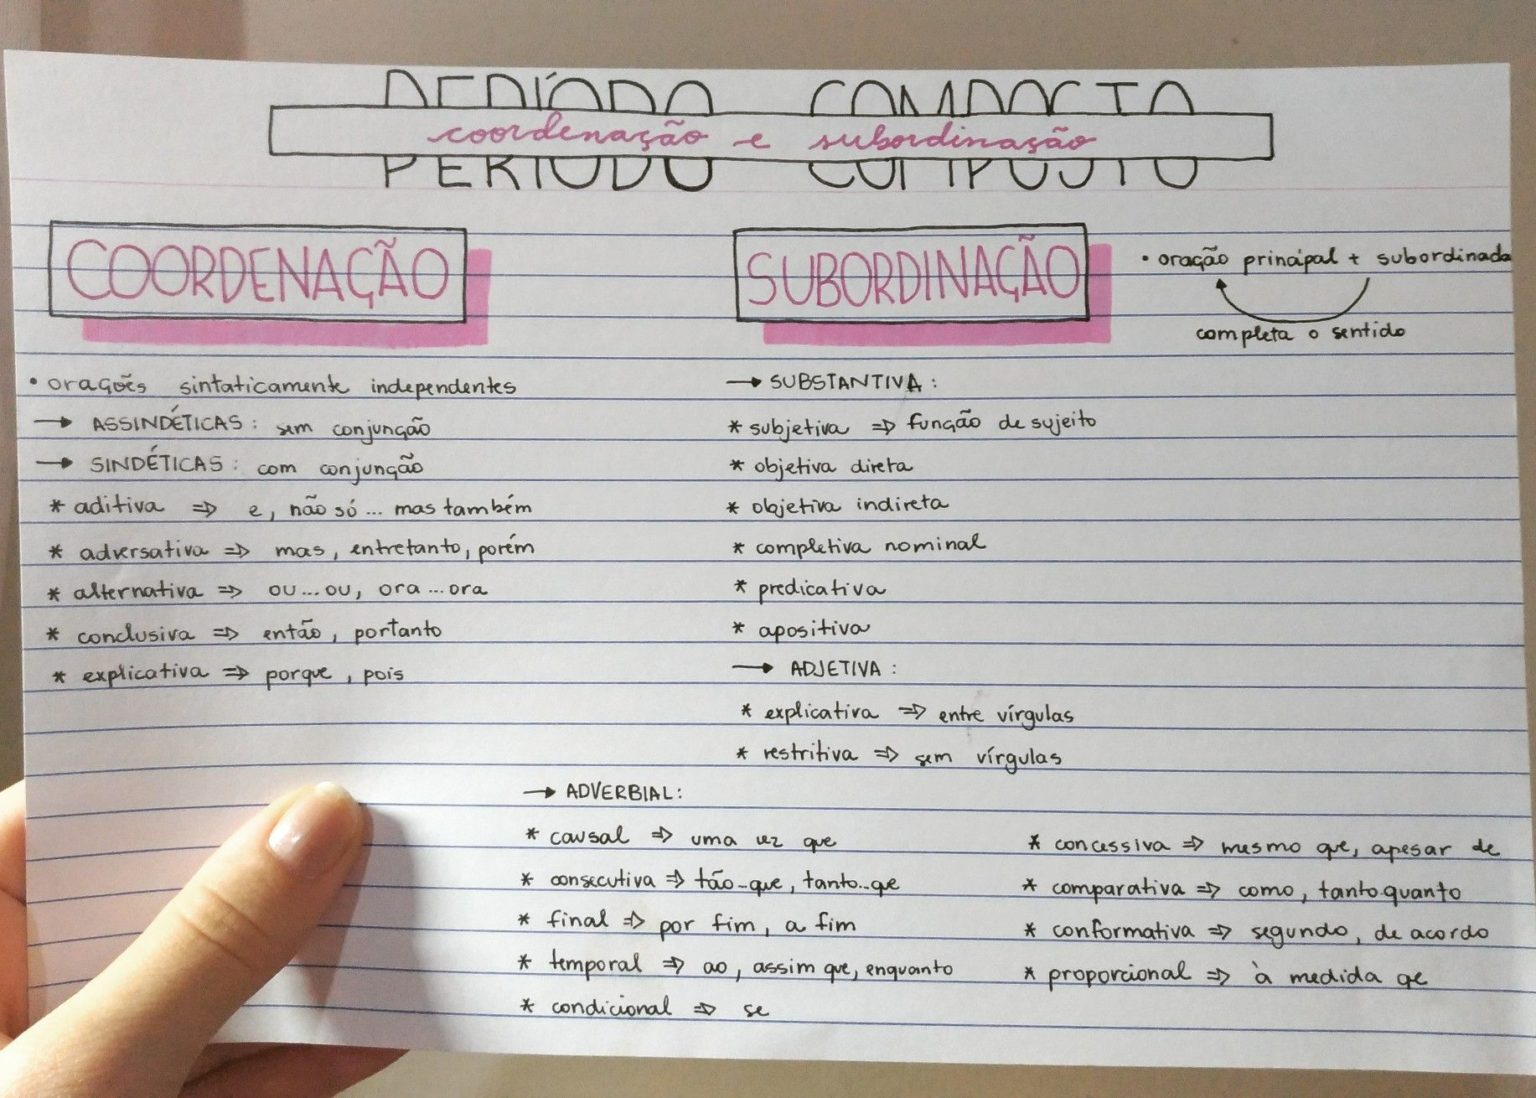 PERÍODO COMPOSTO
coordenação e subordinação
COORDENAÇÃO
• orações sintaticamente independentes
→ ASSINDÉTICAS: sem conjunção
→ SINDÉTICAS: com conjunção
* aditiva ⇒ e, não só... mas também
* adversativa ⇒ mas, entretanto, porém
* alternativa ⇒ ou...ou, ora...ora
* conclusiva ⇒ então, portanto
* explicativa ⇒ porque, pois
SUBORDINAÇÃO
• oração principal + subordinada
completa o sentido
→ SUBSTANTIVA:
* subjetiva ⇒ função de sujeito
* objetiva direta
* objetiva indireta
* completiva nominal
* predicativa
* apositiva
→ ADJETIVA:
* explicativa ⇒ entre vírgulas
* restritiva ⇒ sem vírgulas
→ ADVERBIAL:
* causal ⇒ uma vez que
* consecutiva ⇒ tão...que, tanto...qe
* final ⇒ por fim, a fim
* temporal ⇒ ao, assim que, enquanto
* condicional ⇒ se
* concessiva ⇒ mesmo que, apesar de
* comparativa ⇒ como, tanto quanto
* conformativa ⇒ segundo, de acordo
* proporcional ⇒ à medida qe